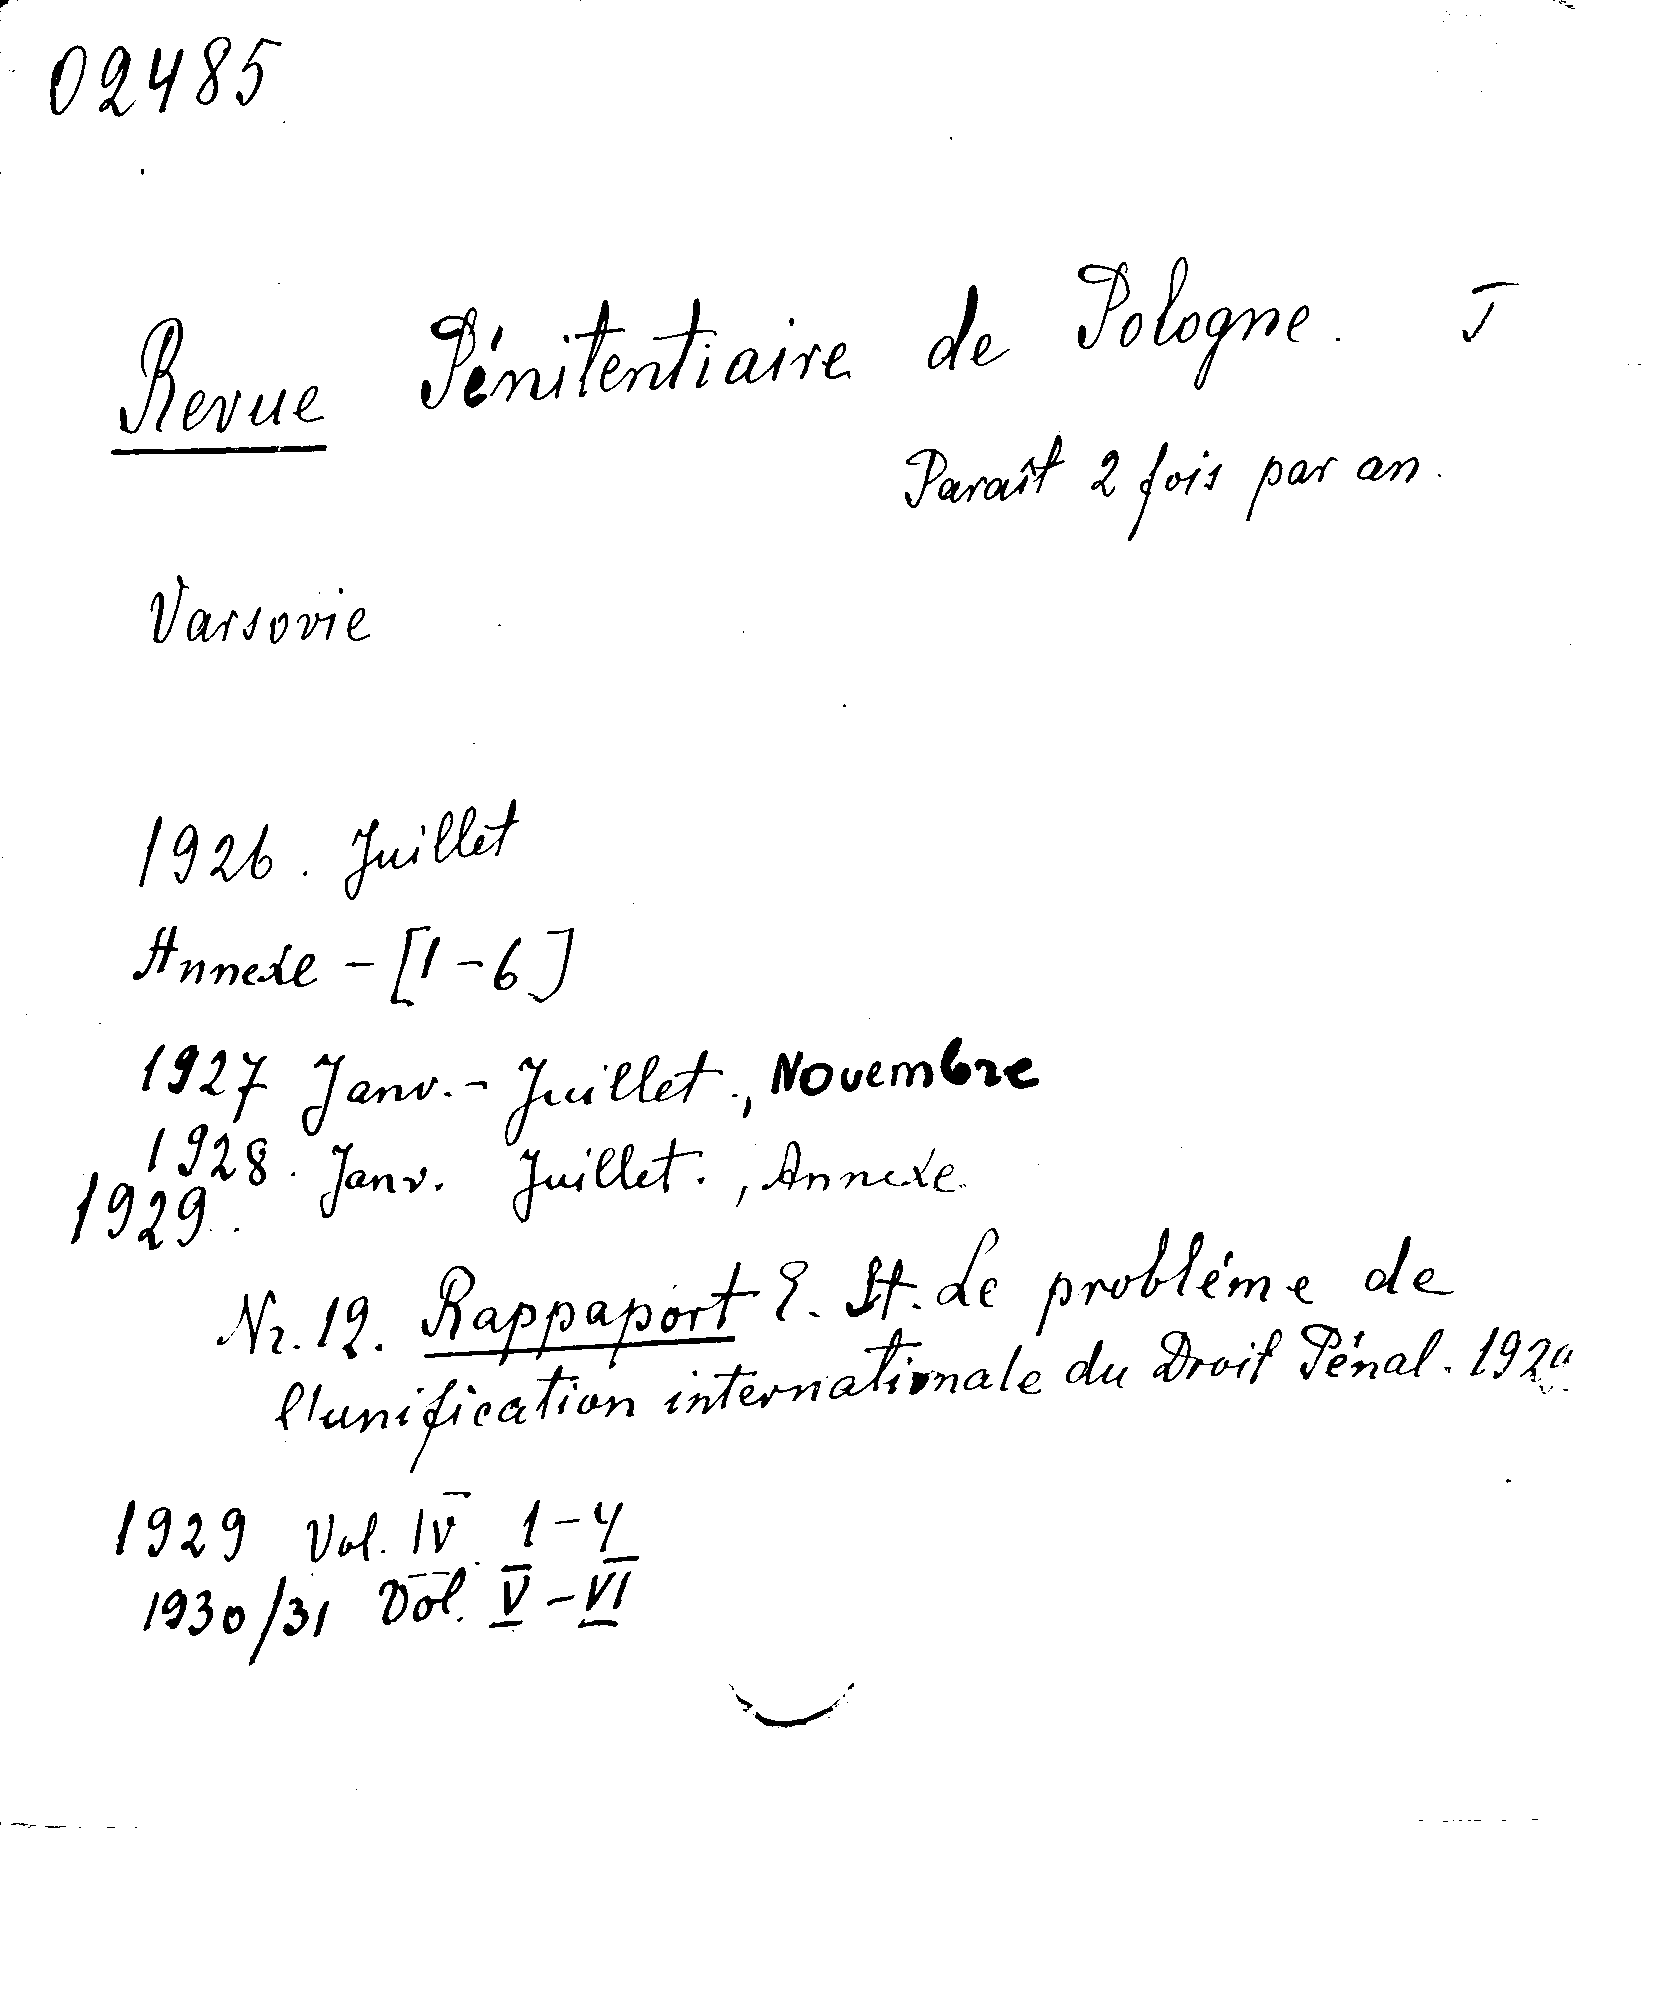 02485
Revue Pénitentiaire de Pologne. T
Paraît 2 fois par an.
Varsovie
1926. Juillet
Annexe - [1-6]
1927 Janv. - Juillet., Novembre
1928. Janv. Juillet., Annexe
1929.
Nr. 12. Rappaport E. St. Le probléme de
l'unification internationale du Droit Pénal.
1929 Vol. IV 1-4
1930/31 Vol. V-VI